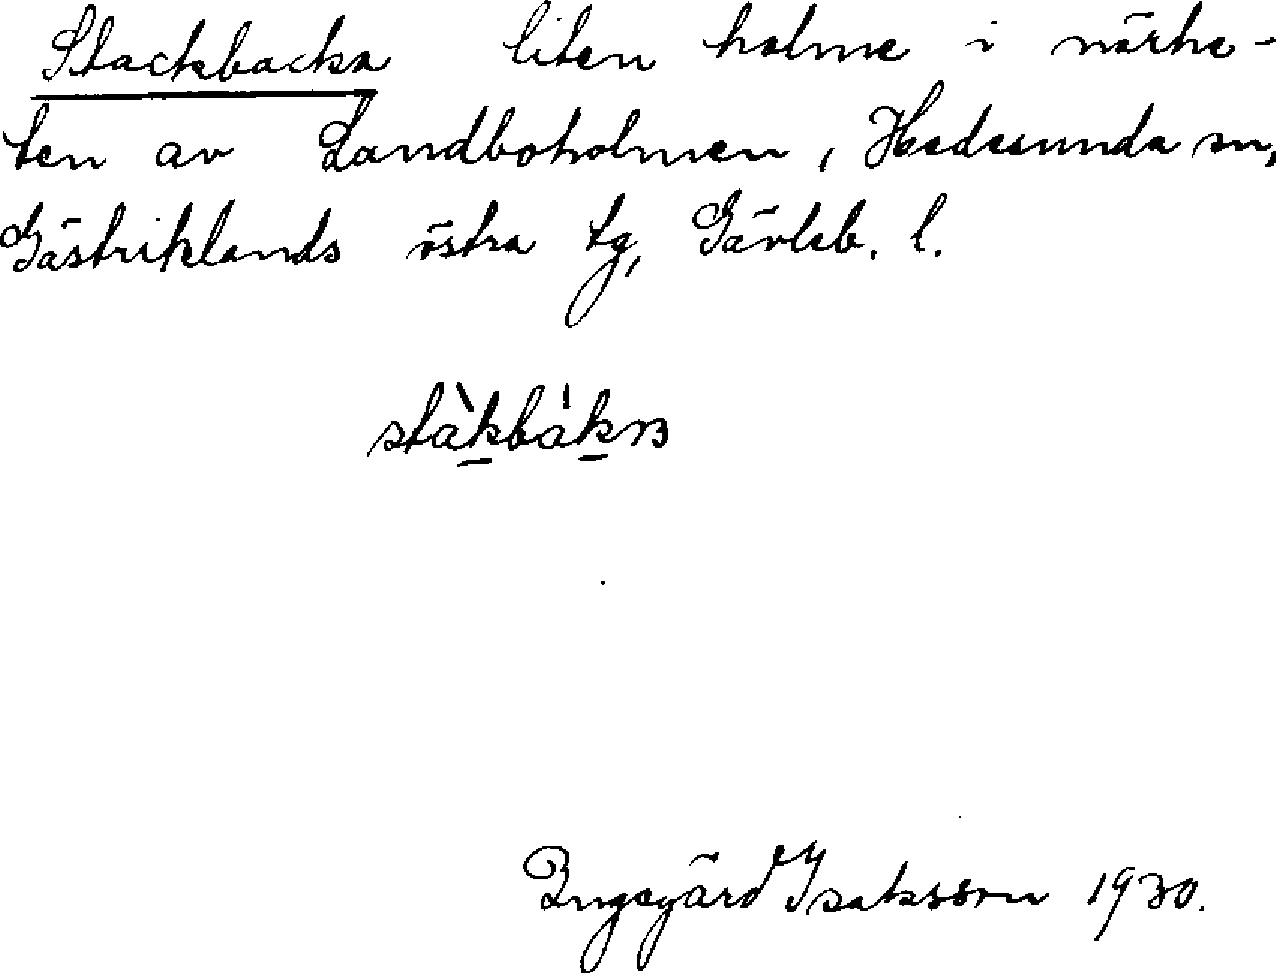 Stackbacka liten holme i närhe-
ten av Landboholmen, Hedesunda sn,
Gästriklands östra tg, Gävleb. l.
stàkbàkɐ
Ingegärd Isaksson 1930.